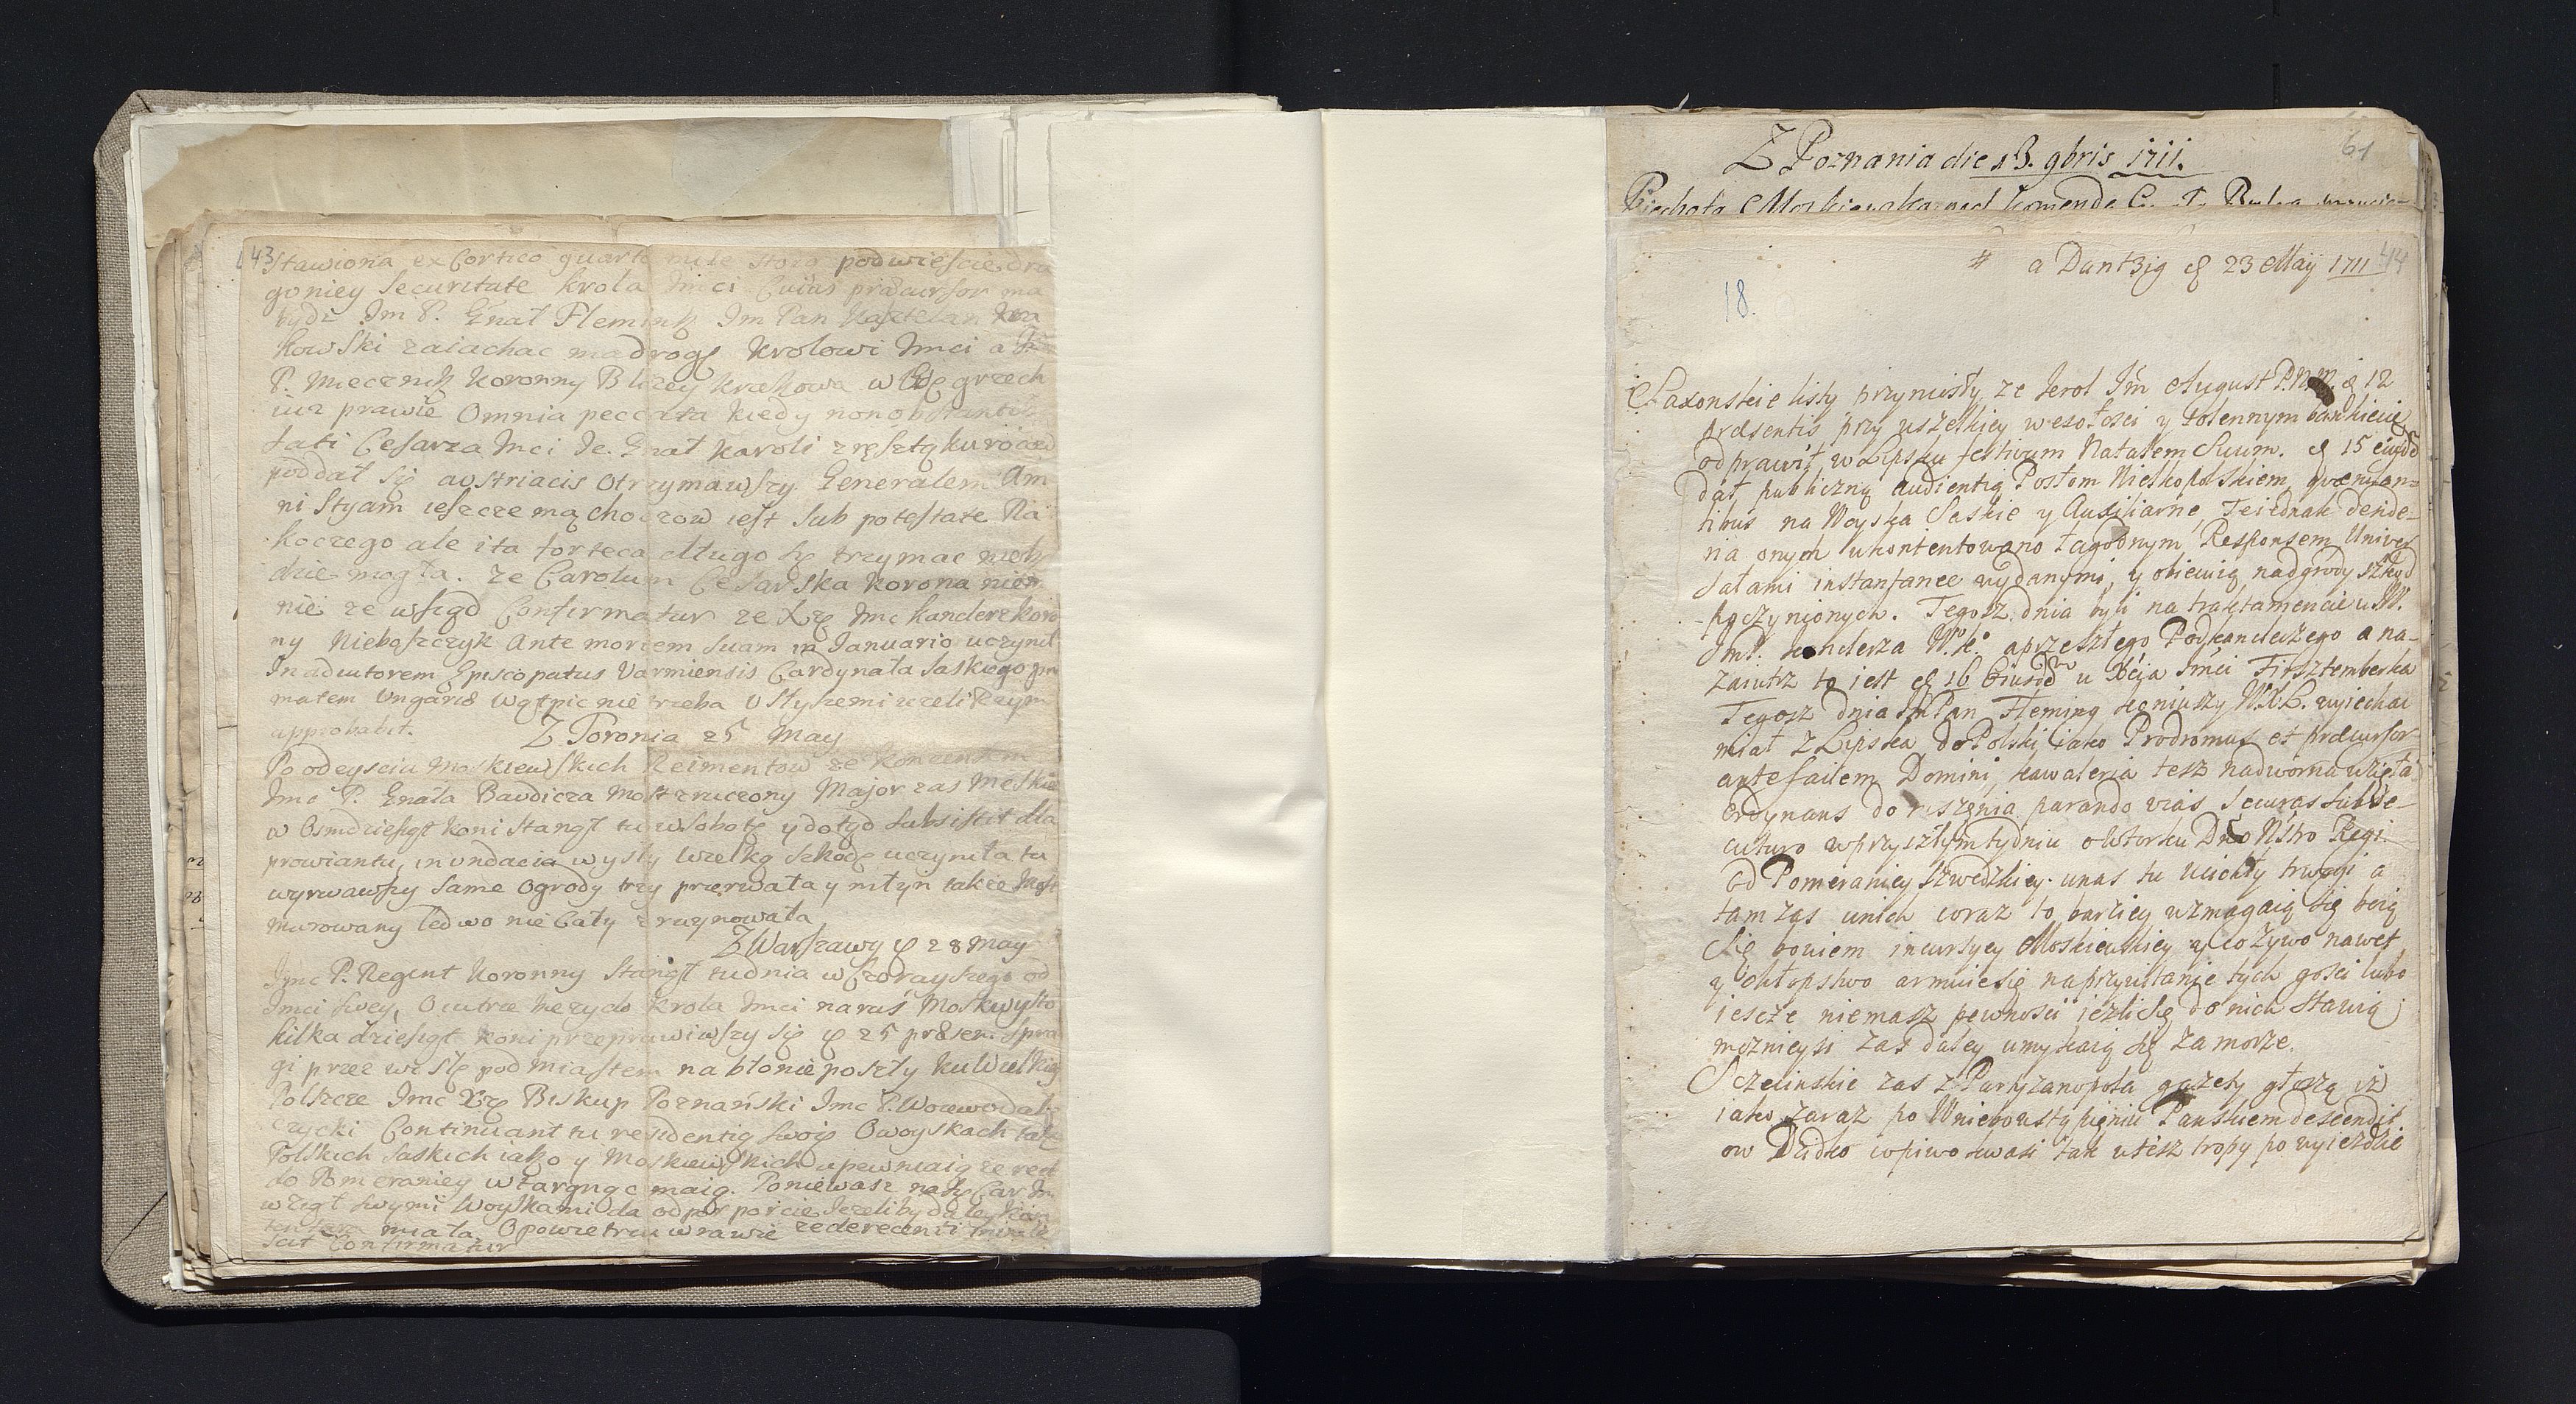 43
Stawiona ex Cortico quarto mile stoią podwieście dra
goniey Securitate krola Imci Cuius præcursor ma
bydz Im P. Gnał Flemink Im Pan Kasztelan Kra
kowski zaiachac ma drogę Krolowi Imci a
P. Miecznik Koronny Blizey krakowa w grzech
iuz prawie Omnia peccata kiedy non obstante
fati Cesarza Imci Je. Gnał Karoli z resztą
poddał się austriacis otrzymawszy Generalem Am
nistyam ieszcze Mąchoczow iest sub potestate Ra
koczego ale i ta forteca długo się trzymac nieb
dzie mogła. Ze Carolum Cesarska korona
nie ze wsząd Confirmatur ze Xże Imc kanclerz koro
ny Nieboszczyk Ante mortem suam in Januario uczynił
In adiutorem Episcopatus Varmiensis Cardynała Saskiego pry
matem Ungariæ wątpic nie trzeba Usłyszemi iezeli Rzym
approbabit.
Z Toronia 25 May
Po odeysciu moskiewskich Reimentow ze Konsensem
Imc P. Gnała Baudicza most zrucony Major zas Moskie
w Osmdziesiąt koni stanął tu w Sobotę y dotąd subsistit dla
prowiantu, inundacia wysły wielką szkodę uczyniła tu
wyrwawszy same Ogrody trzy przerwała y młyn takze Most
murowany ledwo nie Cały zruynowała
Z Warszawy d 28 May
Imc P. Regent Koronny Stanął tu dnia wczorayszego od
Imci swey, O iutrze krola Imci naras Moskwy sto
kilka dziesiąt koni przeprawiwszy się d 25 præsen. spra
gi przez wisłę pod miastem na błonie poszły ku Wielkiey
Polszcze Imc Xże Biskup Poznański Imc P. Woiewoda
czycki Continuant tu residentią swoię O woyskach tak
Polskich Saskich iako y Moskiewskich upewniaią ze
do Pomeraniey wtargnąc maią. Poniewasz nasz Car Im
wziął swymi Woyskami da odpor porcie Jezeliby
miała O powietrzu w rawie ze decrescenti
Confirmatur
Z Poznania die 13. 9bris 1711.
61
Piechota Moskiewska pod komendą
# a Dantzig d 23 Maij 1711
44
18.
Saxonskie listy przyniosły, ze krol Im August P.N.M. d 12
præsentis przy uszelkiey wesołosci y solennym bankiecie
odprawił w Lipsku festivum Natalem Suum. d 15 eiusdē
dał publiczną Audientią Posłom Wielkopolskiem, quærulan=
tibus na Woyska Saskie y Auxiliarne, Te iednak deside-
ria onych ukontentowano łagodnym Responsem Univer
sałami instantanee wydanymi, y obietnią nadgrody szkod
poczynionych. Tegosz dnia byli na traktamencie u W.
Im. kanclerza W.K. a przeszłego Podkanclerzego a na-
zaiutrz to iest d 16 eiusdē u Xcia Imci Firsztemberka
Tegosz dnia Im Pan Fleming koniuszy W.X.L. wyiechac
miał z Lipska do Polski, iako Prodromus et præcursor
ante faciem Domini, kawaleria tesz nadworna wzięła
ordynans do ruszenia parando vias securas subse-
cuturo w przyszłym tydniu o wtorku Dno Nstro Regi.
Od Pomeraniey Szwedzkiey. u nas tu ucichły trwogi a
tam zas u nich coraz to barziey wzmagaią się boią
się bowiem incursyey Moskiewskiey y co żywo nawet
y chłopstwo armuie się na przywitanie tych gosci lubo
iescze niemasz pewnosci iezli się do nich stawią
moznieysi zas daley umykaią się za morze.
Szczecinskie zas z Partyzanopola gazety głoszą iż
iako zaraz po Wniebowstąpieniu Panskiem descendit
ow Dudko w piwo kwasi tak utesz tropy po wyiezdzie